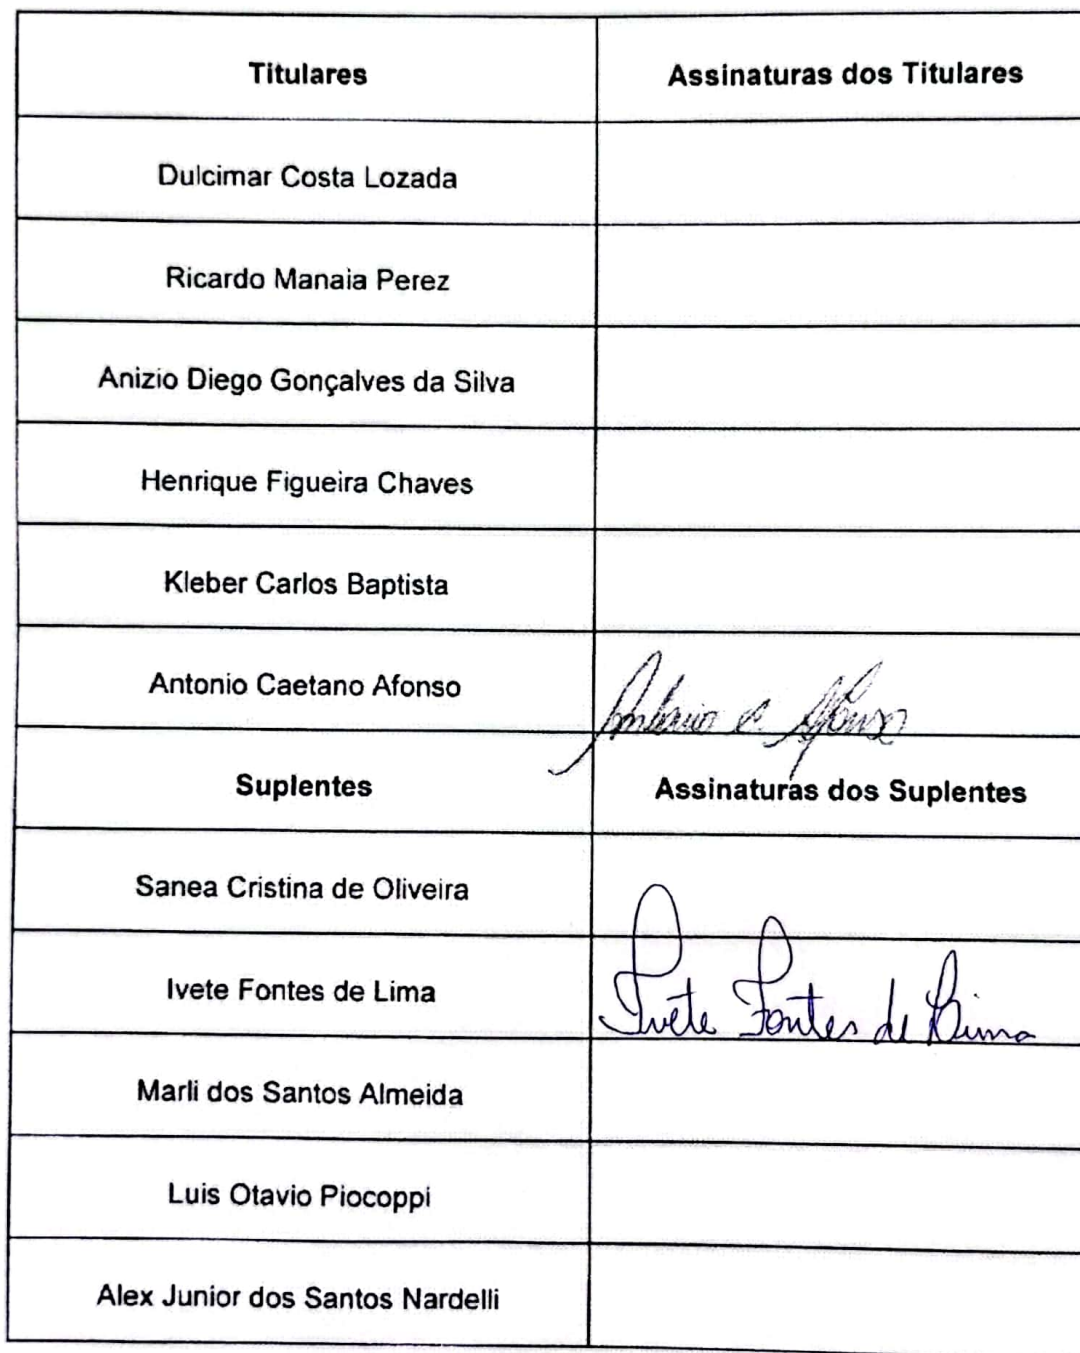 Titulares Assinaturas dos Titulares
Dulcimar Costa Lozada
Ricardo Manaia Perez
Anizio Diego Gonçalves da Silva
Henrique Figueira Chaves
Kleber Carlos Baptista
Antonio Caetano Afonso Antonio C. Afonso
Suplentes Assinaturas dos Suplentes
Sanea Cristina de Oliveira
Ivete Fontes de Lima Ivete Fontes de Lima
Marli dos Santos Almeida
Luis Otavio Piocoppi
Alex Junior dos Santos Nardelli